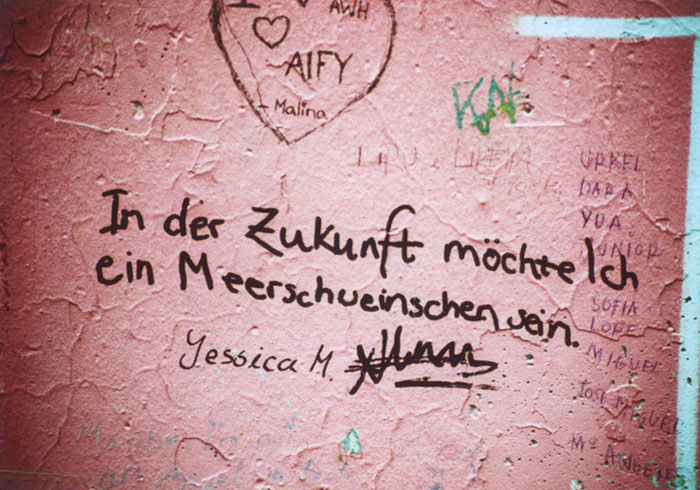 I
AWH
AIFY
- Malina
URKEL
DARA
YUA
JUNIOR
In der Zukunft möchte Ich
ein Meerschueinschen sein.
SOFIA
LOPE
MIGUEL
Yessica M.
JOSE MIGUEL
Mª ANGELES